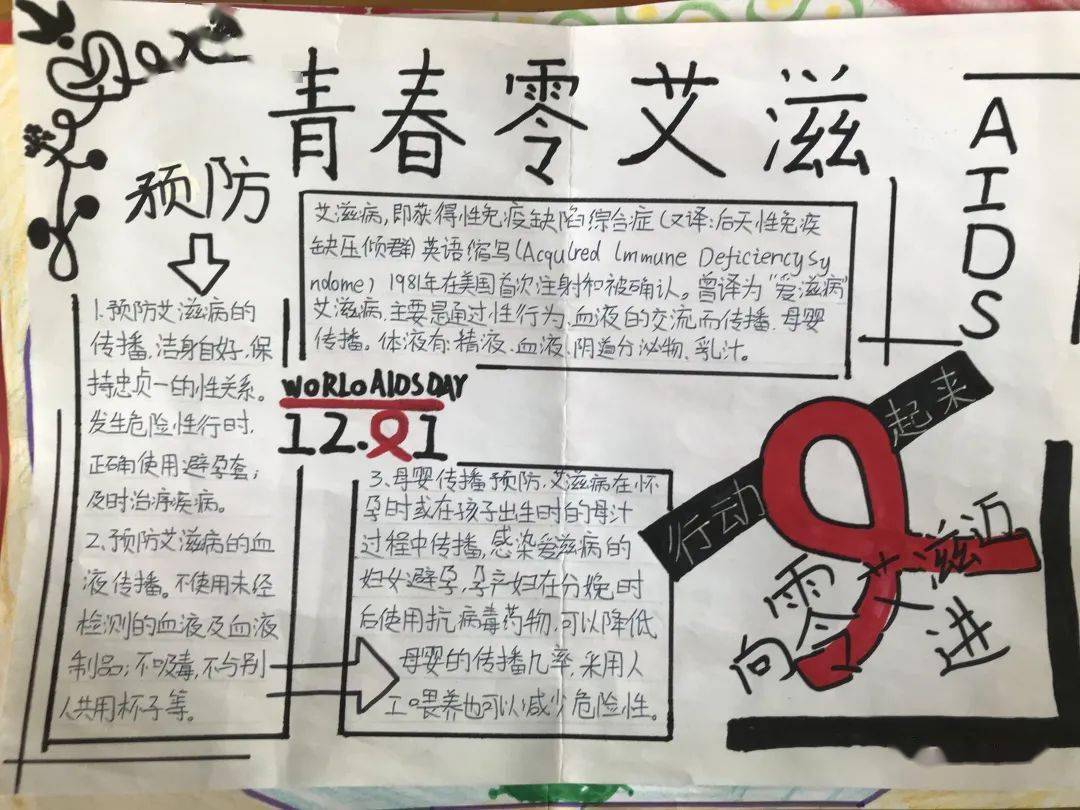 青春零艾滋
AIDS
预防
艾滋病,即获得性免疫缺陷综合症(又译:后天性免疫
缺压倾群)英语缩写(Acquired Immune Deficiency Sy
ndome)1981年在美国首次注射和被确认。曾译为“爱滋病”
艾滋病,主要是通过性行为、血液的交流而传播,母婴
传播。体液有:精液、血液、阴道分泌物、乳汁。
1.预防艾滋病的
传播,洁身自好,保
持忠贞一的性关系。
发生危险性行时,
正确使用避孕套;
及时治疗疾病。
2.预防艾滋病的血
液传播。不使用未经
检测的血液及血液
制品;不吸毒,不与别
人共用杯子等。
WORLD AIDS DAY
12.1
3.母婴传播预防,艾滋病在怀
孕时或在孩子出生时的母汁
过程中传播,感染爱滋病的
妇女避孕,孕产妇在分娩时
后使用抗病毒药物,可以降低
母婴的传播几率,采用人
工喂养也可以减少危险性。
行动起来
向零艾滋迈进